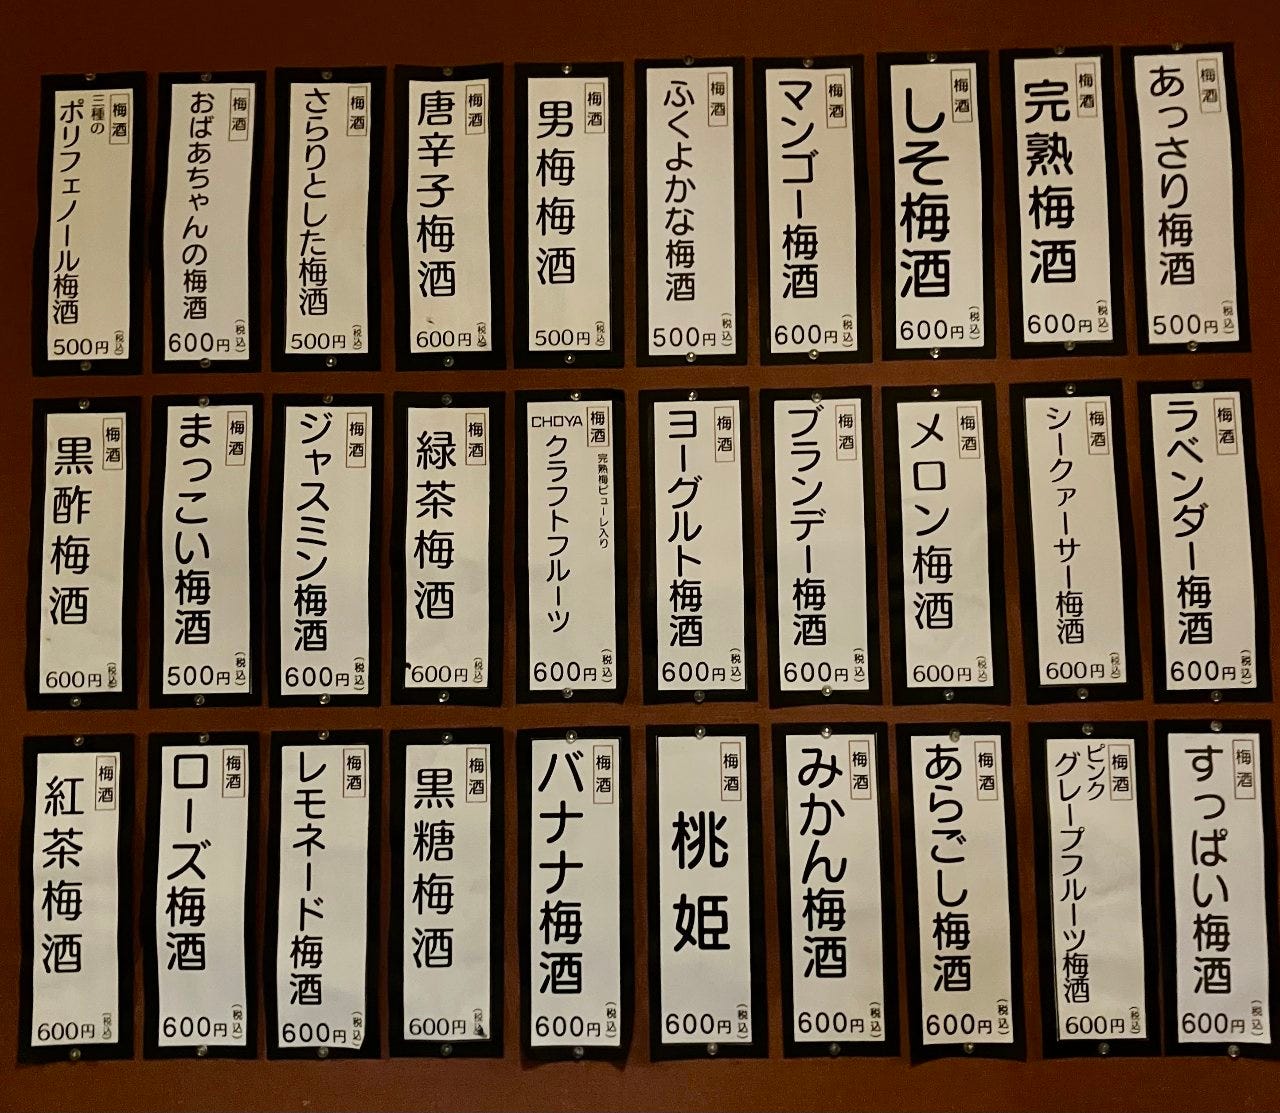 梅酒
あっさり梅酒
500円(税込)
梅酒
完熟梅酒
600円(税込)
梅酒
しそ梅酒
600円(税込)
梅酒
マンゴー梅酒
600円(税込)
梅酒
ふくよかな梅酒
500円(税込)
梅酒
男梅梅酒
500円(税込)
梅酒
唐辛子梅酒
600円(税込)
梅酒
さらりとした梅酒
500円(税込)
梅酒
おばあちゃんの梅酒
600円(税込)
梅酒
三種の
ポリフェノール梅酒
500円(税込)
梅酒
ラベンダー梅酒
600円(税込)
梅酒
シークァーサー梅酒
600円(税込)
梅酒
メロン梅酒
600円(税込)
梅酒
ブランデー梅酒
600円(税込)
梅酒
ヨーグルト梅酒
600円(税込)
梅酒
完熟梅ピューレ入り
CHOYA
クラフトフルーツ
600円(税込)
梅酒
緑茶梅酒
600円(税込)
梅酒
ジャスミン梅酒
600円(税込)
梅酒
まっこい梅酒
500円(税込)
梅酒
黒酢梅酒
600円(税込)
梅酒
すっぱい梅酒
600円(税込)
梅酒
ピンク
グレープフルーツ梅酒
600円(税込)
梅酒
あらごし梅酒
600円(税込)
梅酒
みかん梅酒
600円(税込)
梅酒
桃姫
600円(税込)
梅酒
バナナ梅酒
600円(税込)
梅酒
黒糖梅酒
600円(税込)
梅酒
レモネード梅酒
600円(税込)
梅酒
ローズ梅酒
600円(税込)
梅酒
紅茶梅酒
600円(税込)